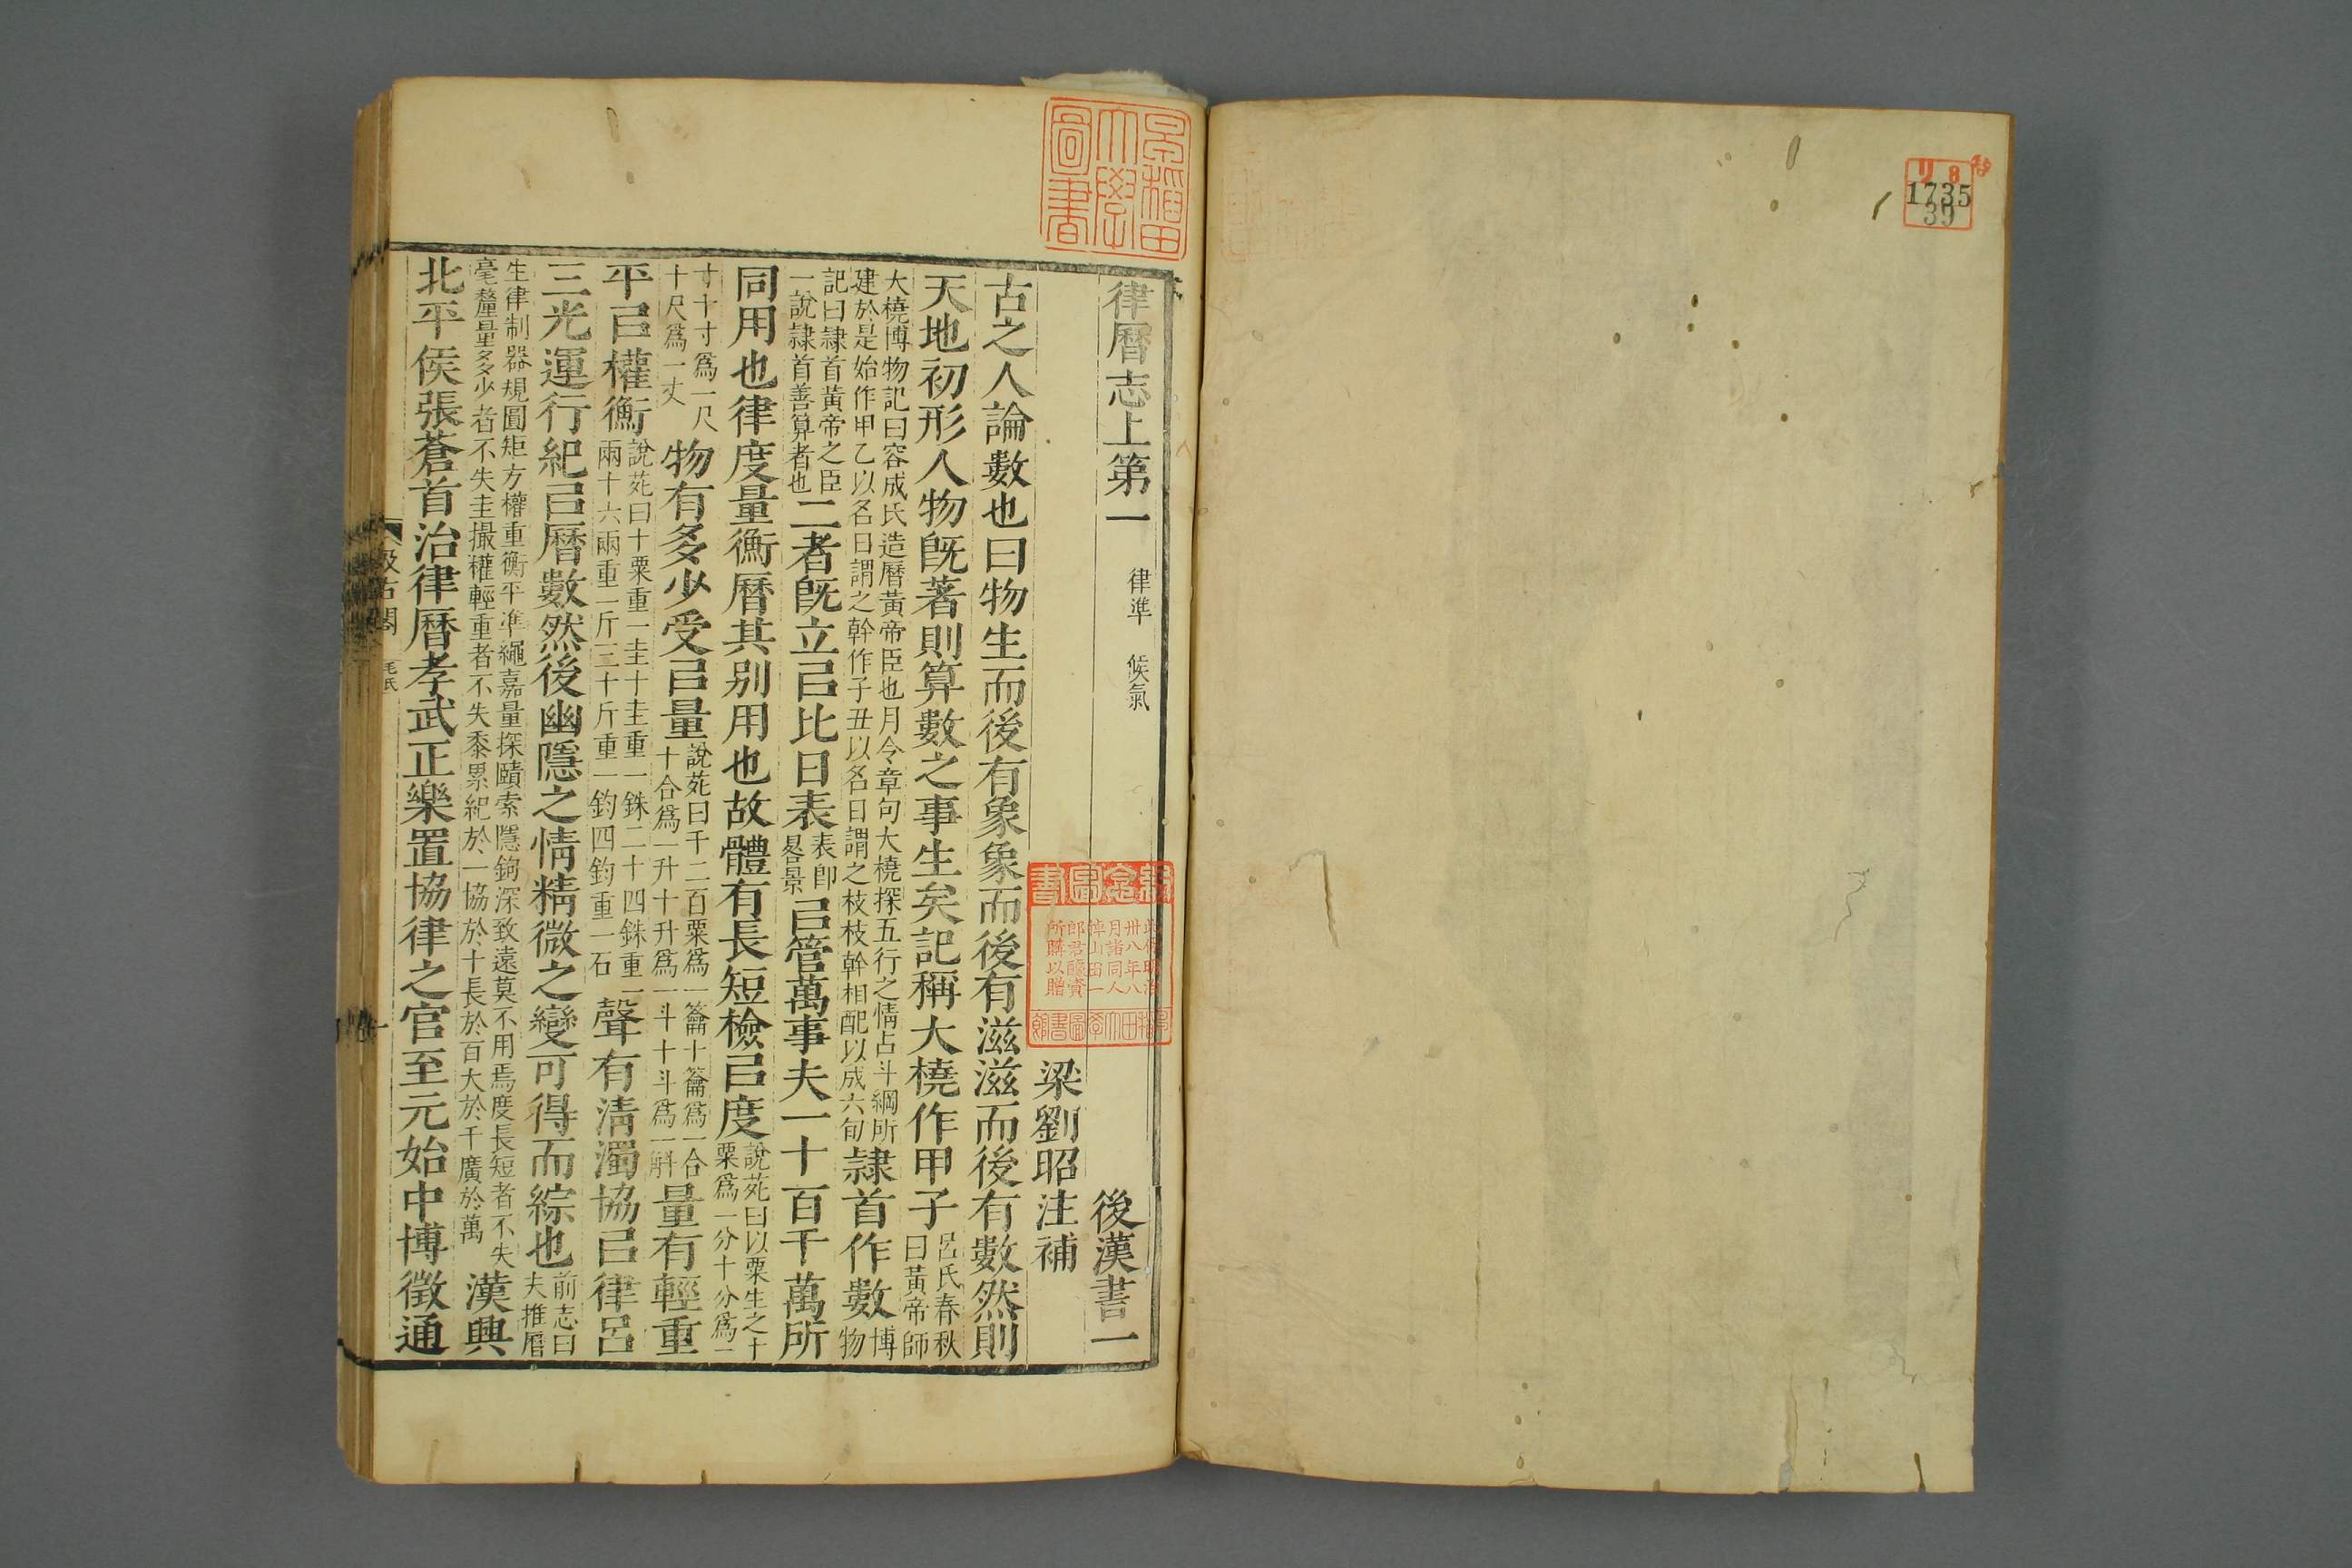 リ 8
1735
39
早稻田大學圖書
律曆志上第一 律準 候氣 後漢書一
梁劉昭注補
古之人論數也曰物生而後有象象而後有滋滋而後有數然則
天地初形人物旣著則算數之事生矣記稱大橈作甲子呂氏春秋曰黃帝師
大橈博物記曰容成氏造曆黃帝臣也月令章句大橈探五行之情占斗綱所建於是始作甲乙以名日謂之幹作子丑以名日謂之枝枝幹相配以成六旬隷首作數博物
記曰隷首黃帝之臣一說隷首善算者也二者旣立㠯比日表表卽晷景㠯管萬事夫一十百千萬所
同用也律度量衡曆其别用也故體有長短檢㠯度說苑曰以粟生之十粟爲一分十分爲一
寸十寸爲一尺十尺爲一丈物有多少受㠯量說苑曰千二百粟爲一籥十籥爲一合十合爲一升十升爲一斗十斗爲一斛量有輕重
平㠯權衡說苑曰十粟重一圭十圭重一銖二十四銖重一兩十六兩重一斤三十斤重一鈞四鈞重一石聲有淸濁協㠯律呂
三光運行紀㠯曆數然後幽隱之情精微之變可得而綜也前志曰夫推曆
生律制器規圓矩方權重衡平準繩嘉量探賾索隱鉤深致遠莫不用焉度長短者不失毫釐量多少者不失圭撮權輕重者不失黍累紀於一協於十長於百大於千廣於萬漢興
北平侯張蒼首治律曆孝武正樂置協律之官至元始中博徵通
汲古閣 毛氏